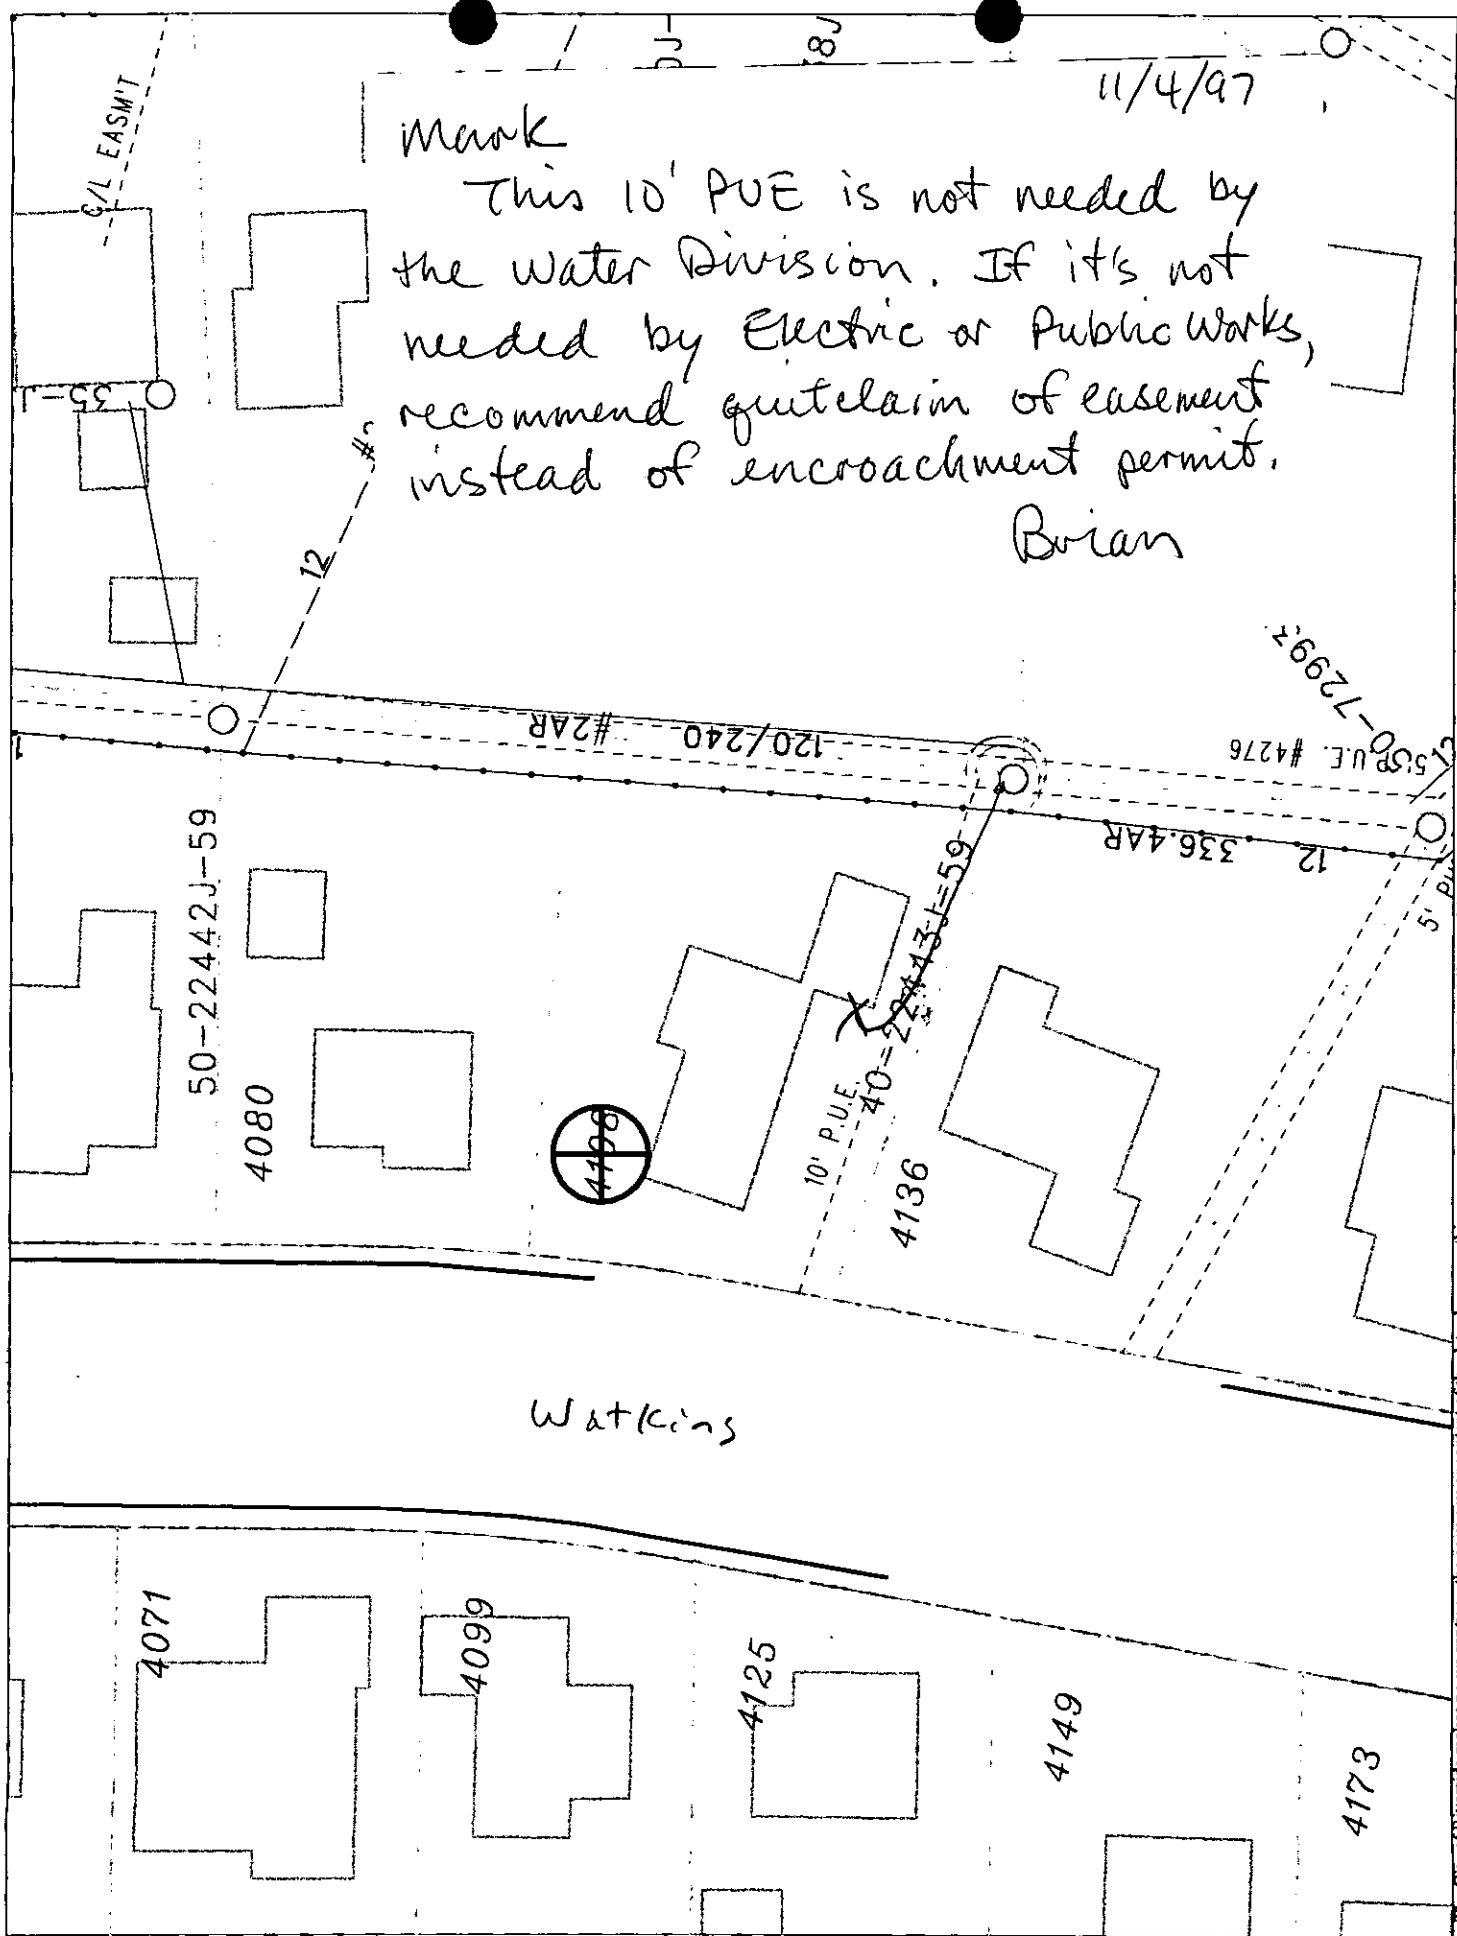 11/4/97
C/L EASM'T
Mark
This 10' PUE is not needed by
the Water Division. If it's not
needed by Electric or Public Works,
recommend quitclaim of easement
instead of encroachment permit.
Brian
35-J
12
#2AR
120/240
5' P.U.E. #4276
336.4AR
12
50-22442J-59
40-22443J-59
4080
4108
10' P.U.E.
4136
Watkins
4071
4099
4125
4149
4173